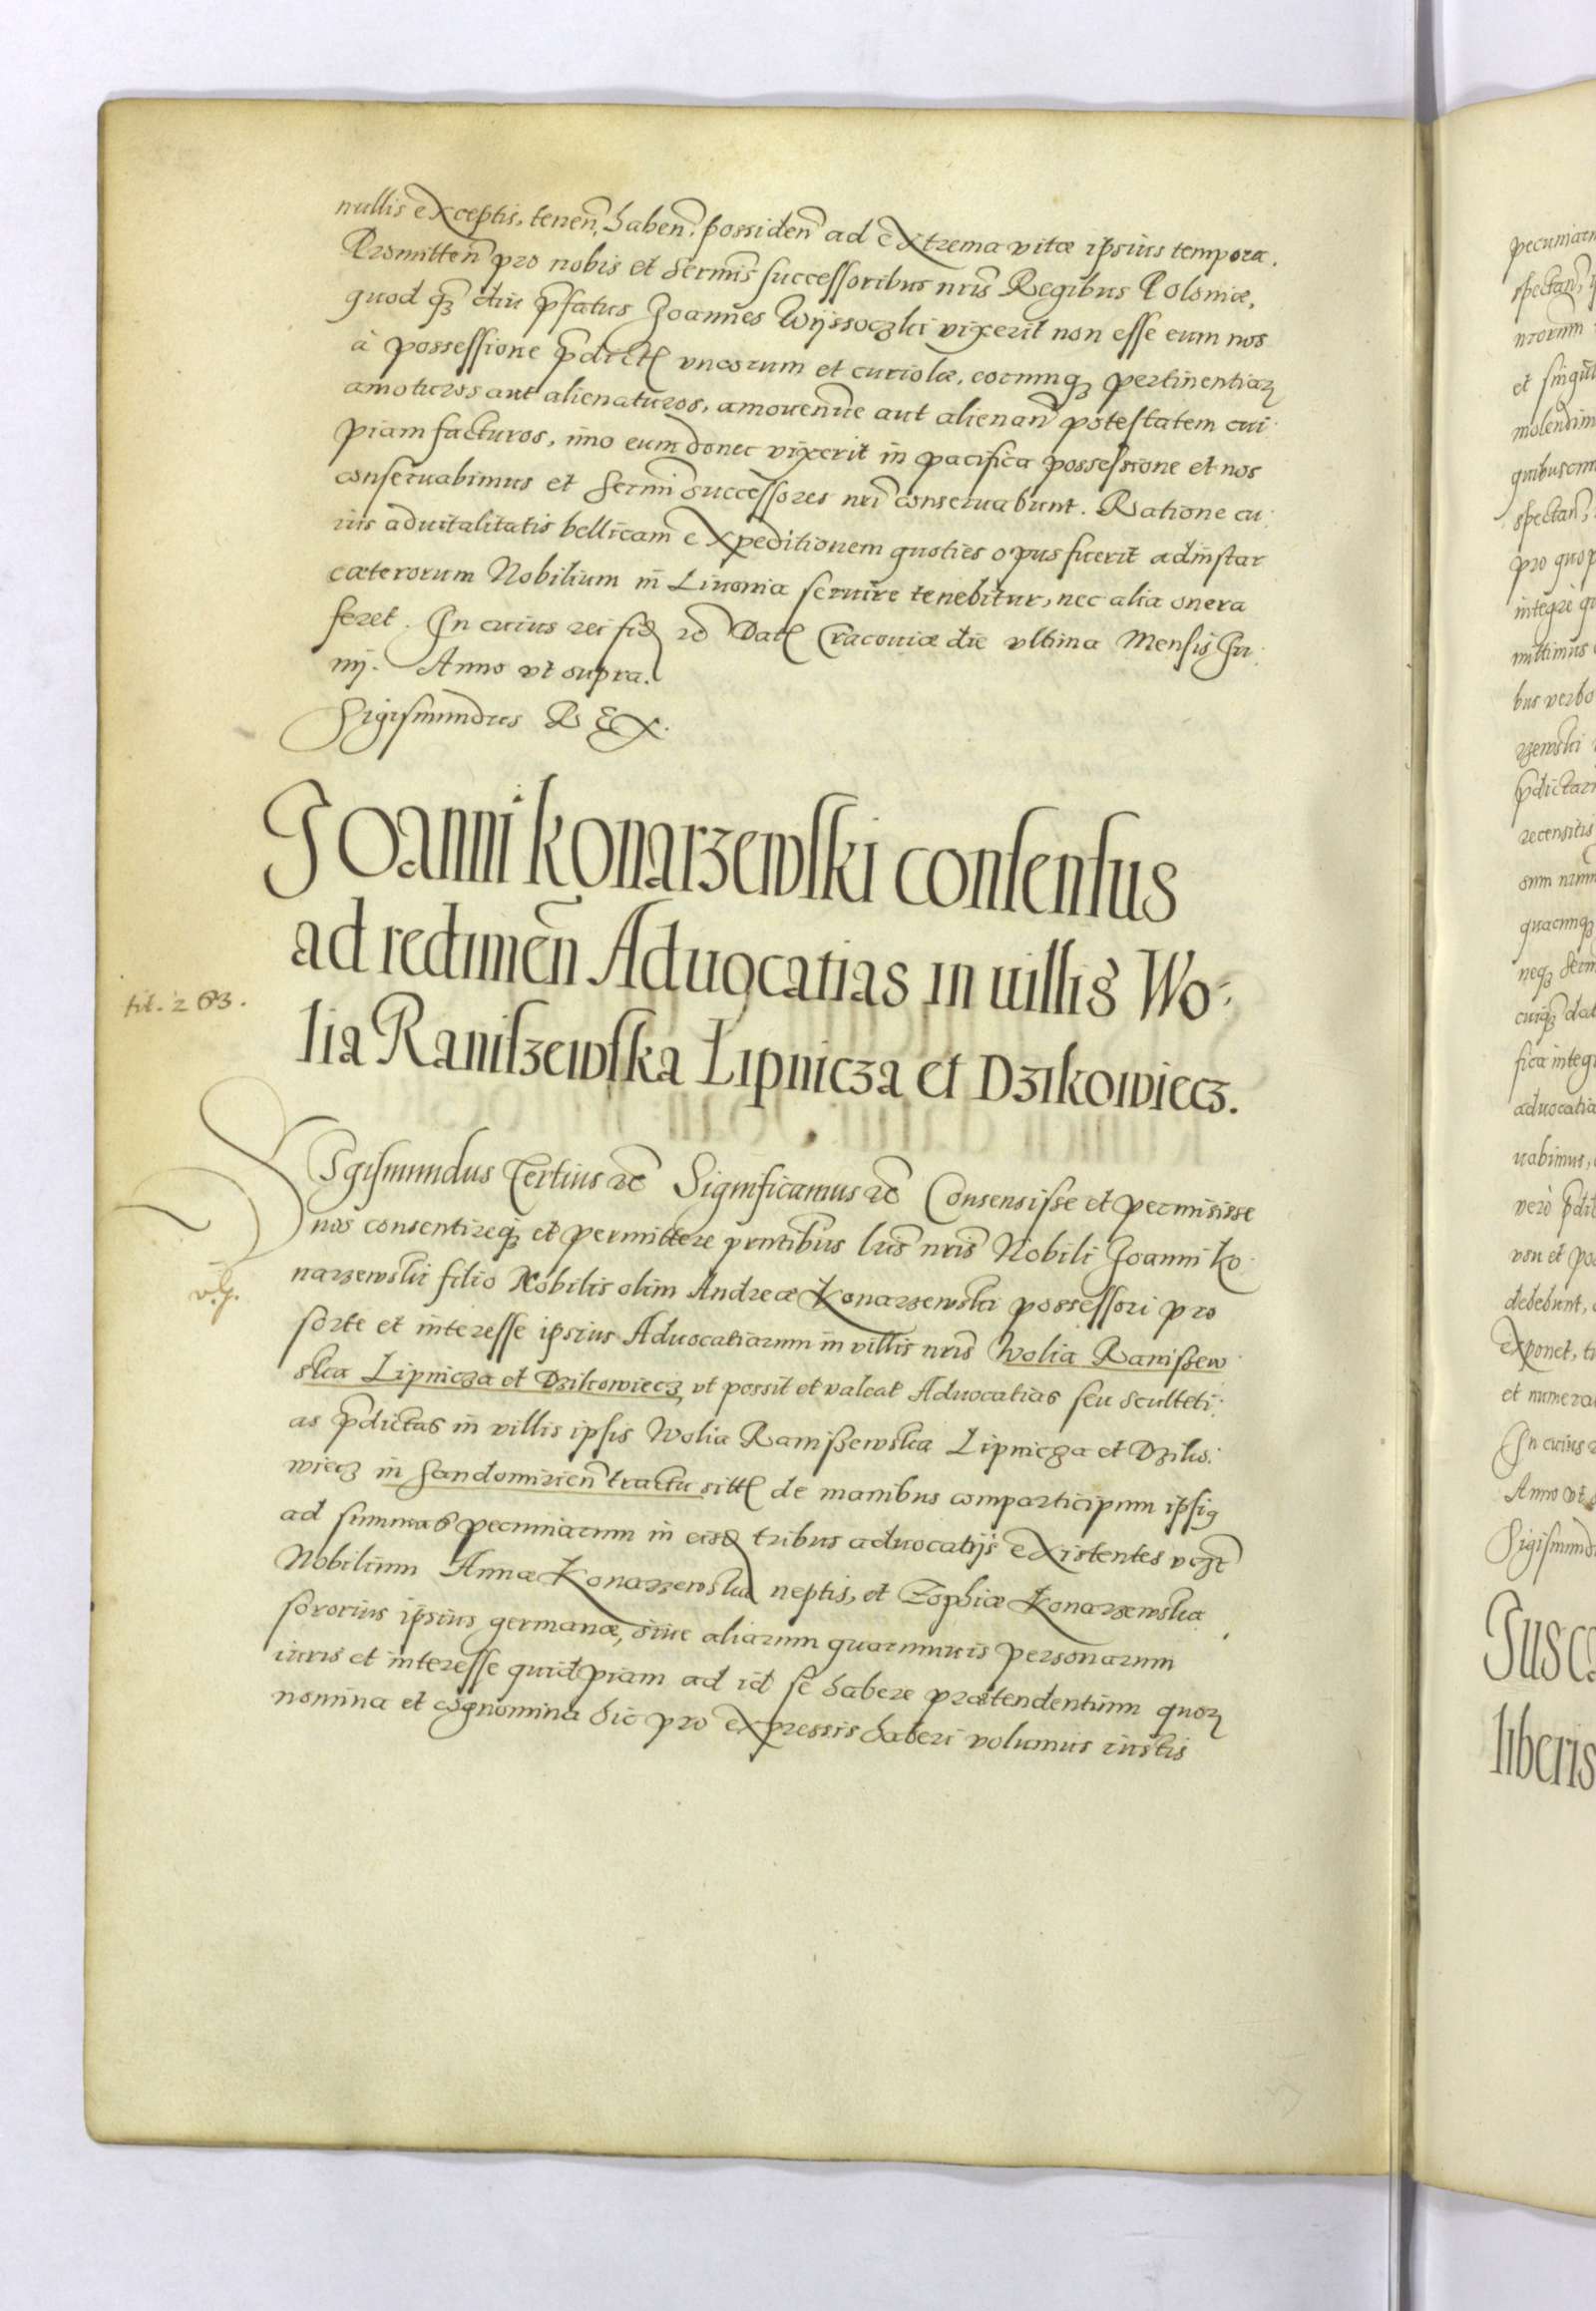 nullis exceptis, tenen̄, haben̄, possiden̄ ad extrema vitæ ipsius tempora.
Promitten̄ pro nobis et Serm̄is successoribus nr̄is Regibus Poloniæ,
quod qz̄ diu p̄fatus Joannes Wÿssoczki vixerit non esse eum nos
à possessione p̄dict̄ vncorum et curiolæ, eorumqꝫ pertinentiaꝝ
amoturos aut alienaturos, amouen̄ue aut alienan̄ potestatem cui
piam facturos, imo eum donec vixerit in pacifica possessione et nos
conseruabimus et Serm̄i successores nr̄i conseruabunt. Ratione cu
ius aduitalitatis bellicam expeditionem quoties opus fuerit ad instar
cæterorum Nobilium in Liuonia seruire tenebitur, nec alia onera
feret. In cuius rei fid̄ ꝛc̄ Dat̄ Cracouiæ die vltima Mensis Ju
nij. Anno vt supra.
Sigismundus REX.
Joanni Konarzewski consensus
ad redimen̄ Aduocatias in uillis Wo-
lia Raniszewska Lipnicza et Dzikowiecz.
fit. 263.
Sigismundus Tertius ꝛc̄ Significamus ꝛc̄ Consensisse et permisisse
nos consentireqꝫ et permittere pn̄tibus lr̄is nr̄is Nobili Joanni Ko
narzewski filio Nobilis olim Andreæ Konarzewski possessori pro
sorte et interesse ipsius Aduocatiarum in villis nr̄is Wolia Raniszew
ska Lipnicza et Dzikowiecz vt possit et valeat Aduocatias seu Sculteti
as p̄dictas in villis ipsis Wolia Raniszewska Lipnicza et Dziko
wiecz in Sandomirien̄ tractu sitt̄ de manibus comparticipum ipsiꝰ
ad summas pecuniarum in eisd̄ tribus aduocatijs existentes vcꝫt̄
Nobilium Annæ Konarzewska neptis, et Zophiæ Konarzewska
sororius ipsius germanæ, siue aliarum quarumuis personarum
iuris et interesse quidpiam ad id se habere prætendentium quoꝝ
nomina et cognomina hic pro expressis haberi volumus iustis